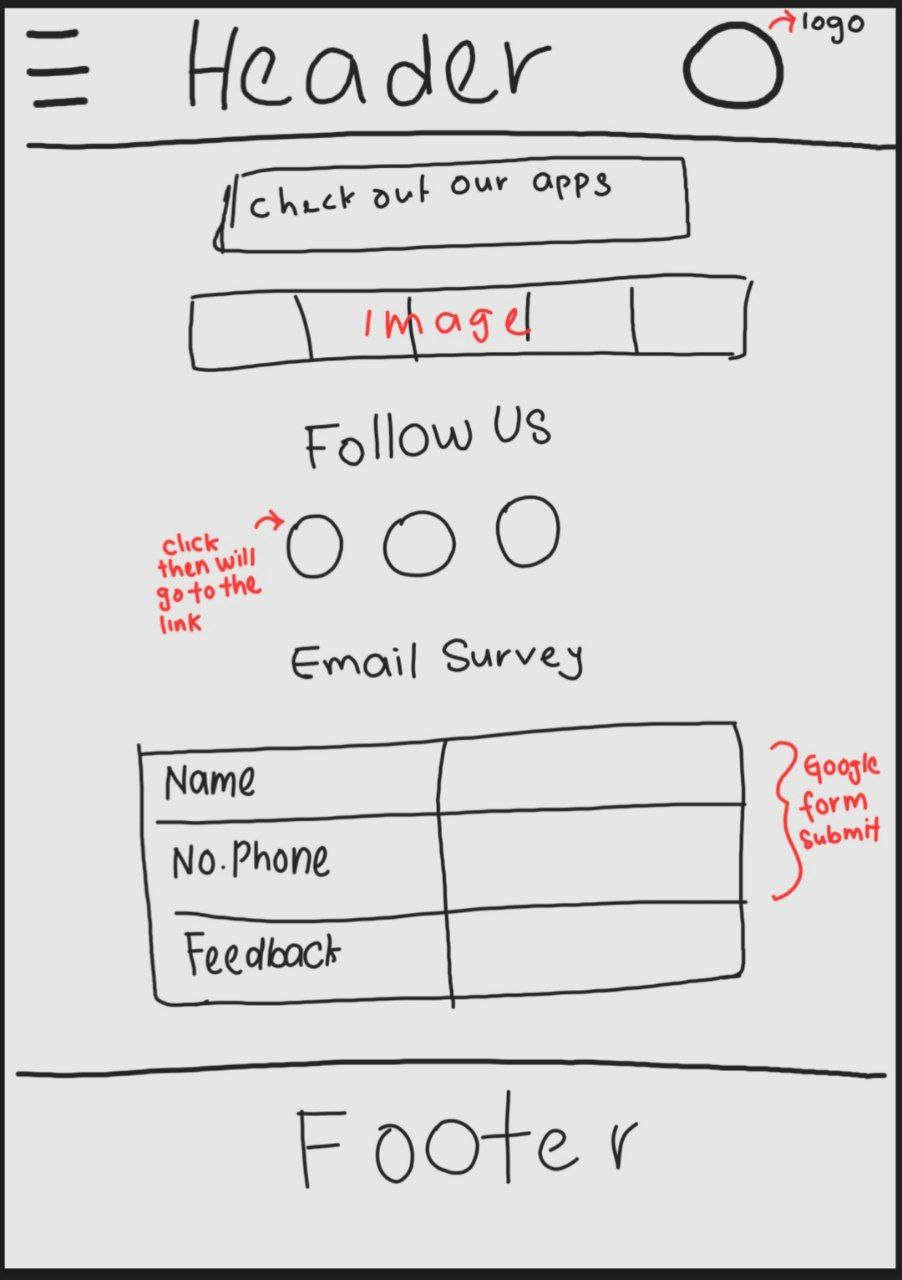 Header
logo
check out our apps
Image
Follow Us
click
then will
go to the
link
Email Survey
Name
No. Phone
Feedback
Google
form
submit
Footer